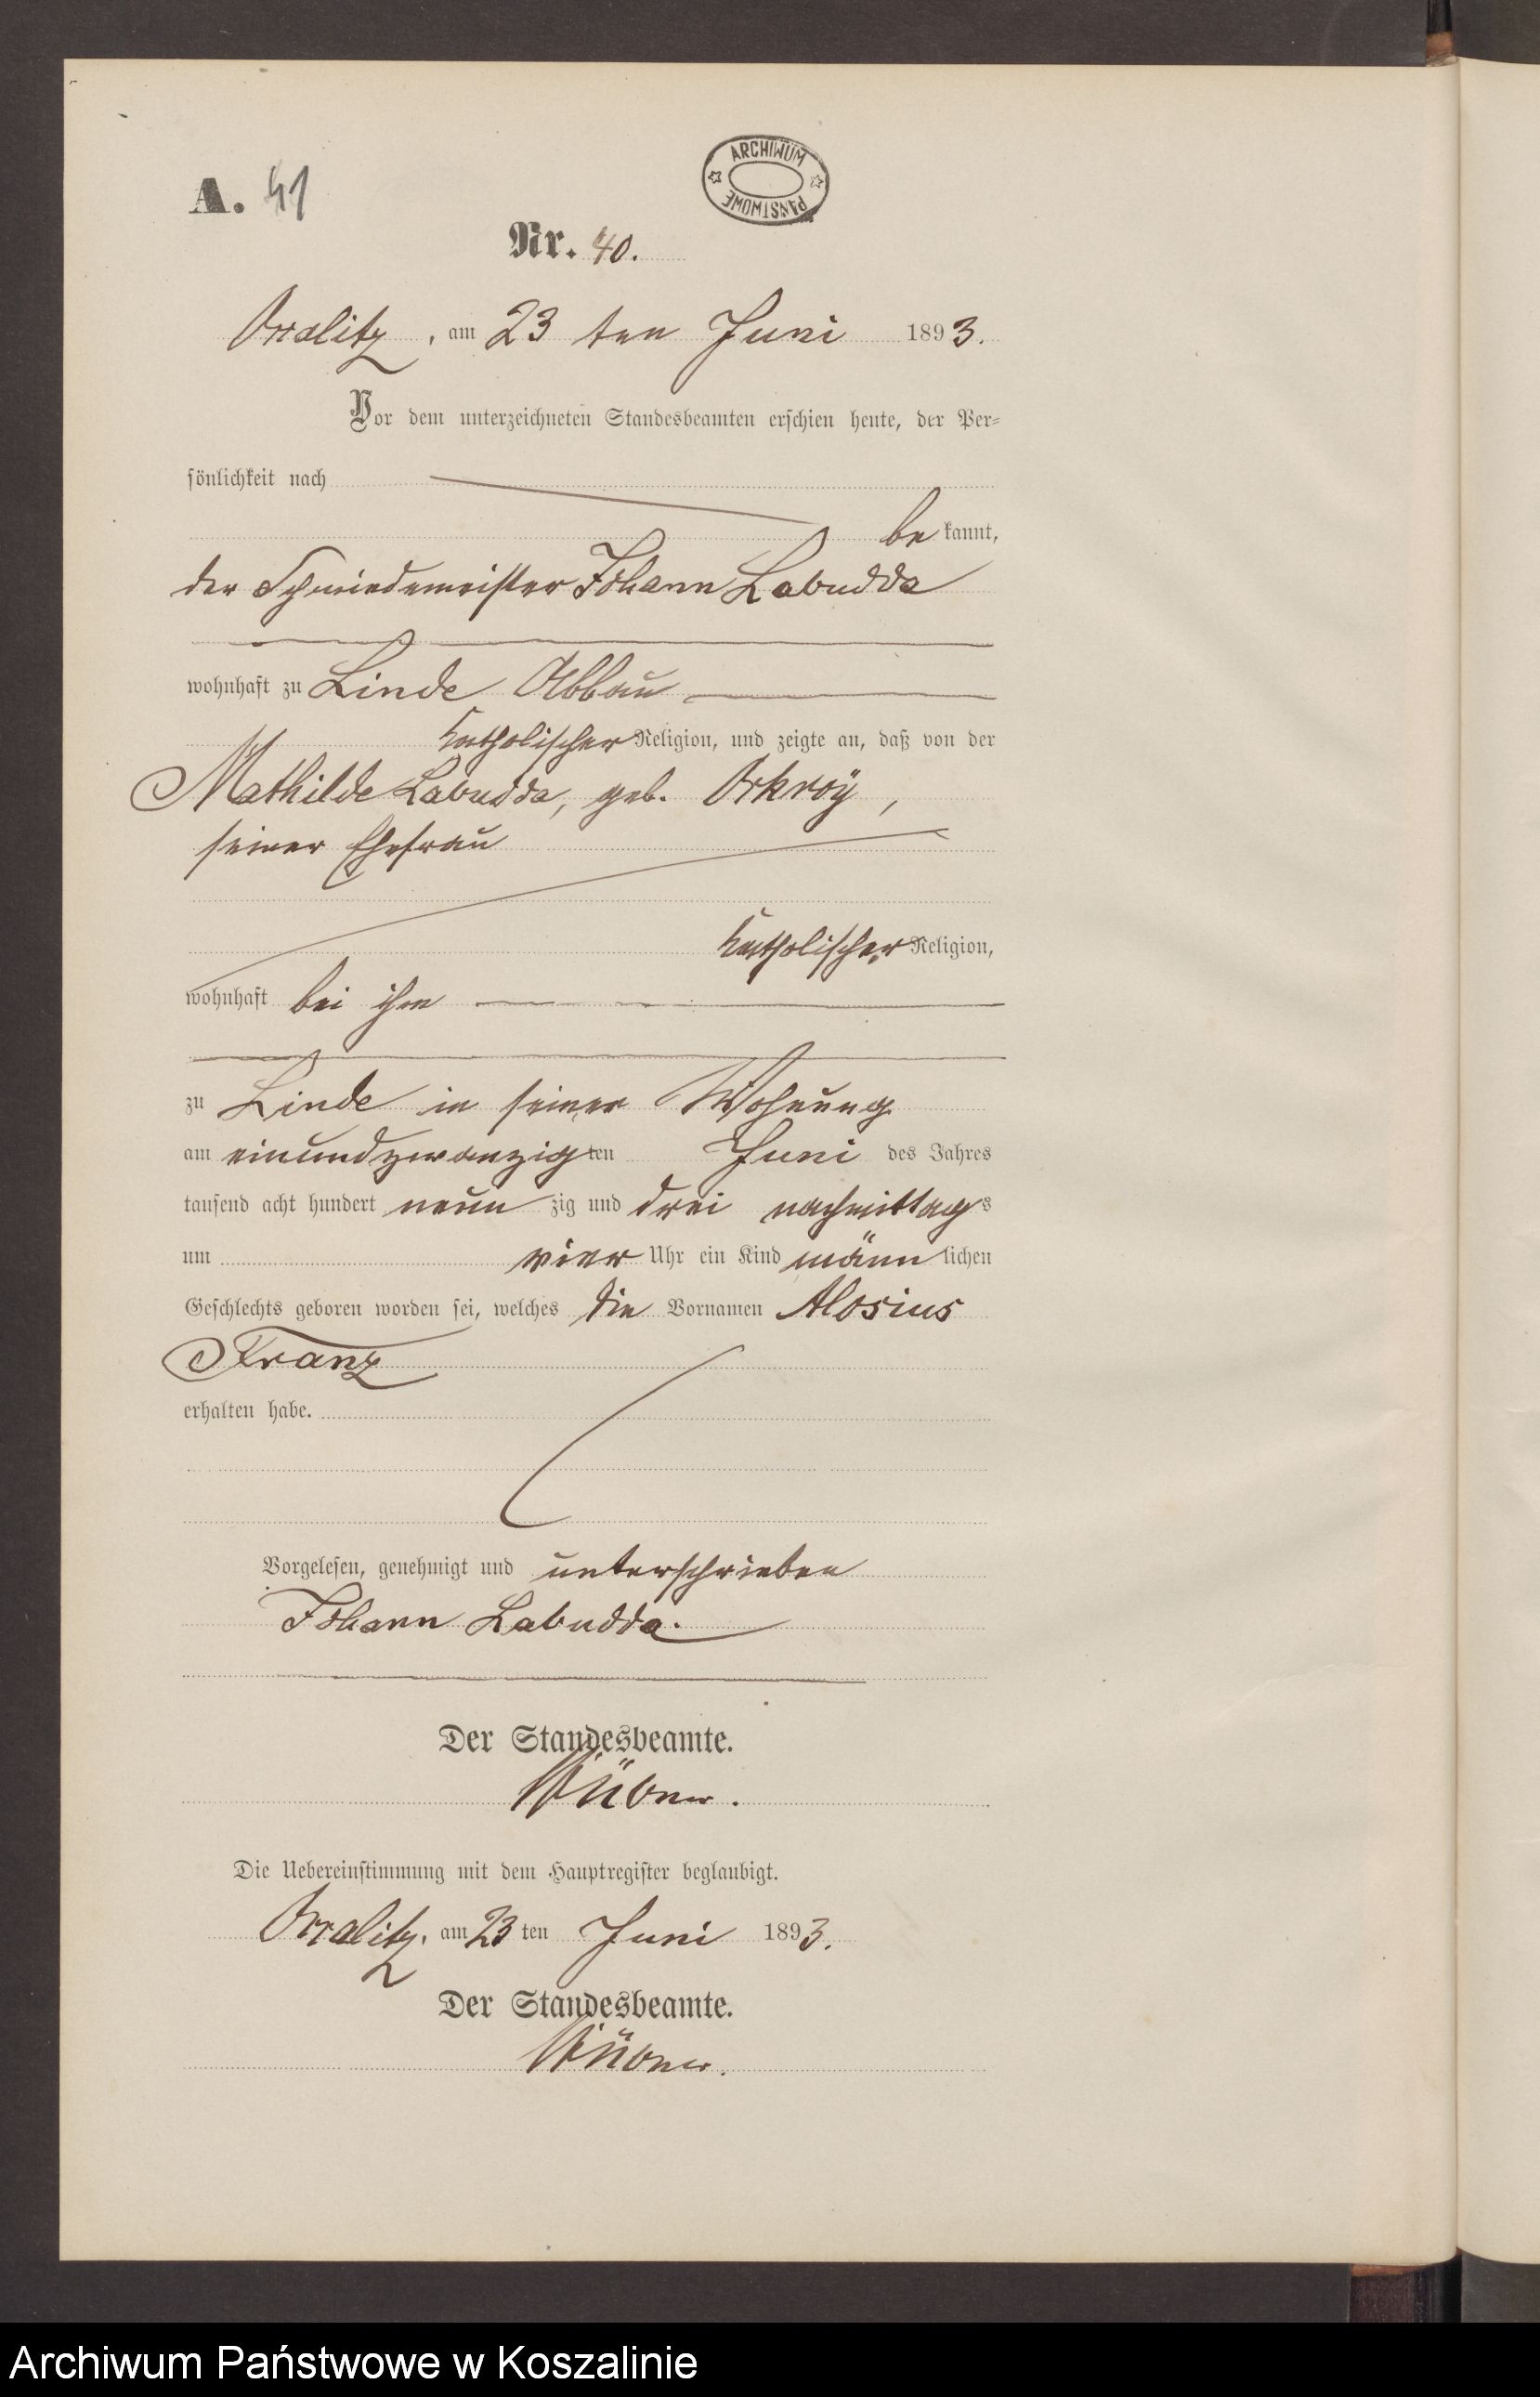 ARCHIWUM PAŃSTWOWE
A. 41
Nr. 40.
am 23 ten Juni 1893.
Vor dem unterzeichneten Standesbeamten erschien heute, der Per=
sönlichkeit nach
be kannt,
der Schmiedemeister Johann Labudda
wohnhaft zu Linde Abbau
katholischer Religion, und zeigte an, daß von der
Mathilde Labudda, geb.
seiner Ehefrau
katholischer Religion,
wohnhaft bei ihm
zu Linde in seiner Wohnung
am einundzwanzig ten Juni des Jahres
tausend acht hundert neun zig und drei nachmittags
um vier Uhr ein Kind männ lichen
Geschlechts geboren worden sei, welches die Vornamen Alosius
Franz
erhalten habe.
Vorgelesen, genehmigt und unterschrieben
Johann Labudda.
Der Standesbeamte.
Die Uebereinstimmung mit dem Hauptregister beglaubigt.
am 23 ten Juni 1893.
Der Standesbeamte.
Archiwum Państwowe w Koszalinie